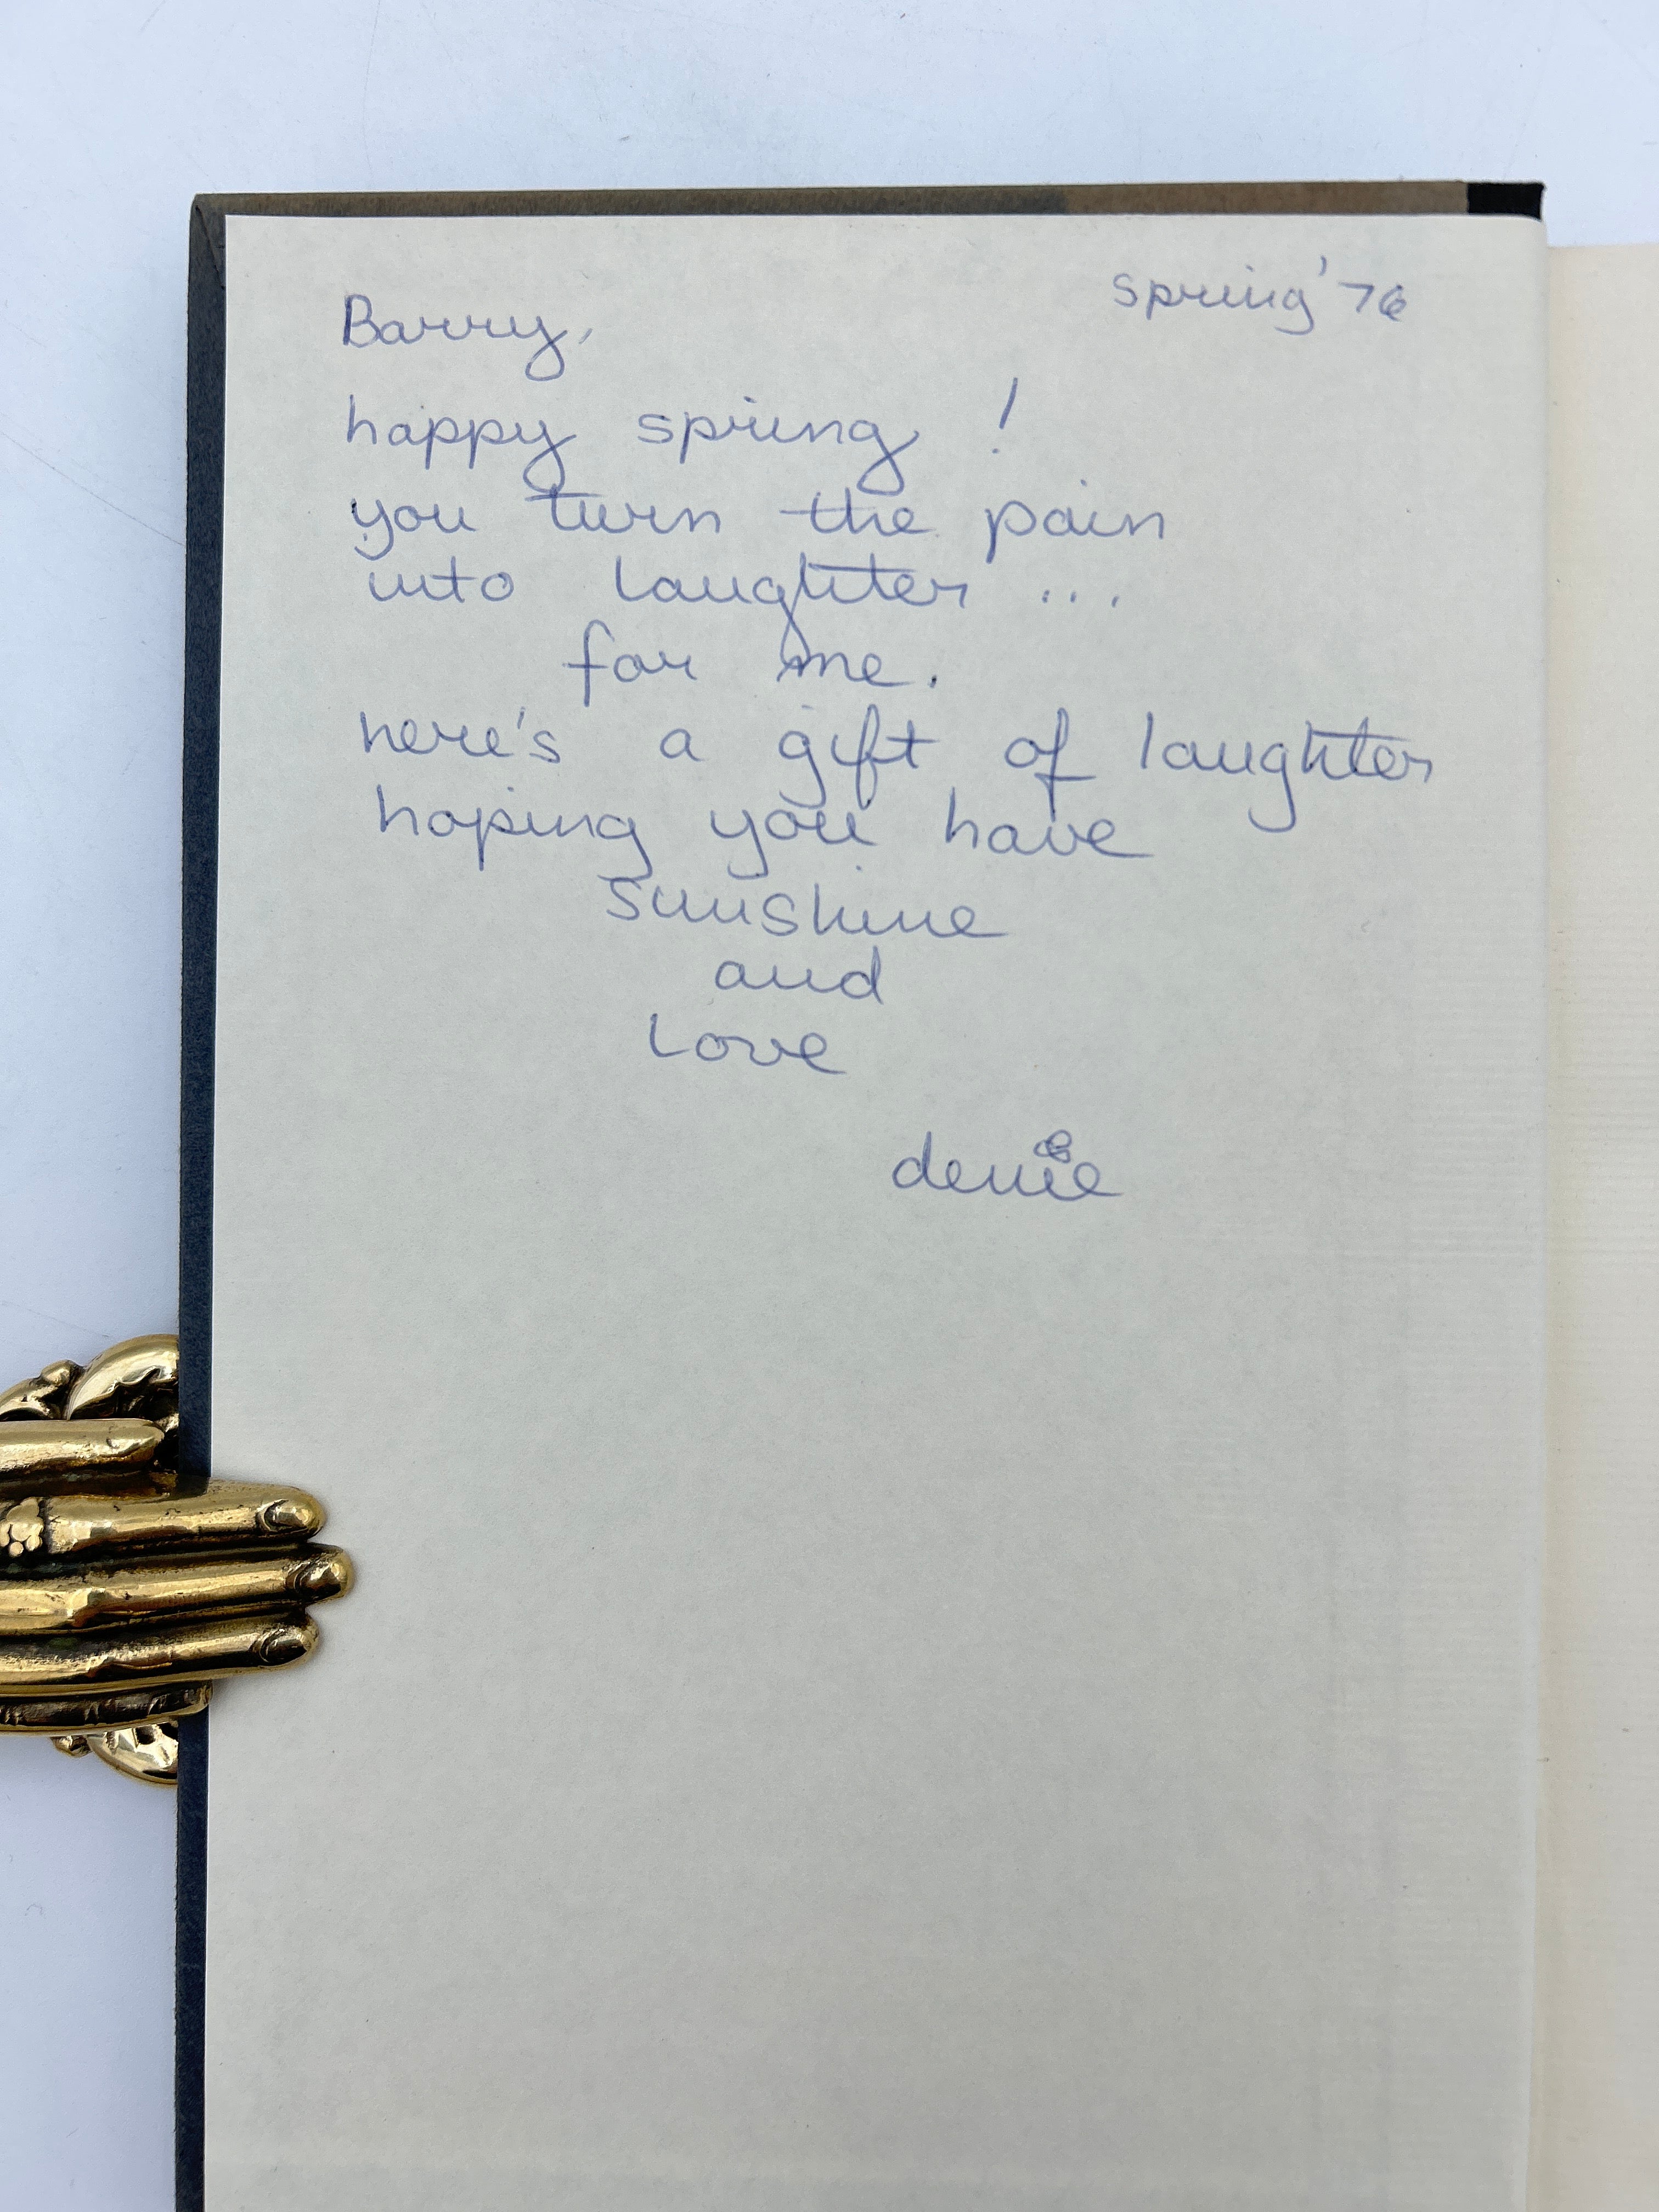 spring '76
Barry,
happy spring !
you turn the pain
into laughter ...
for me.
here's a gift of laughter
hoping you have
sunshine
and
Love
denie